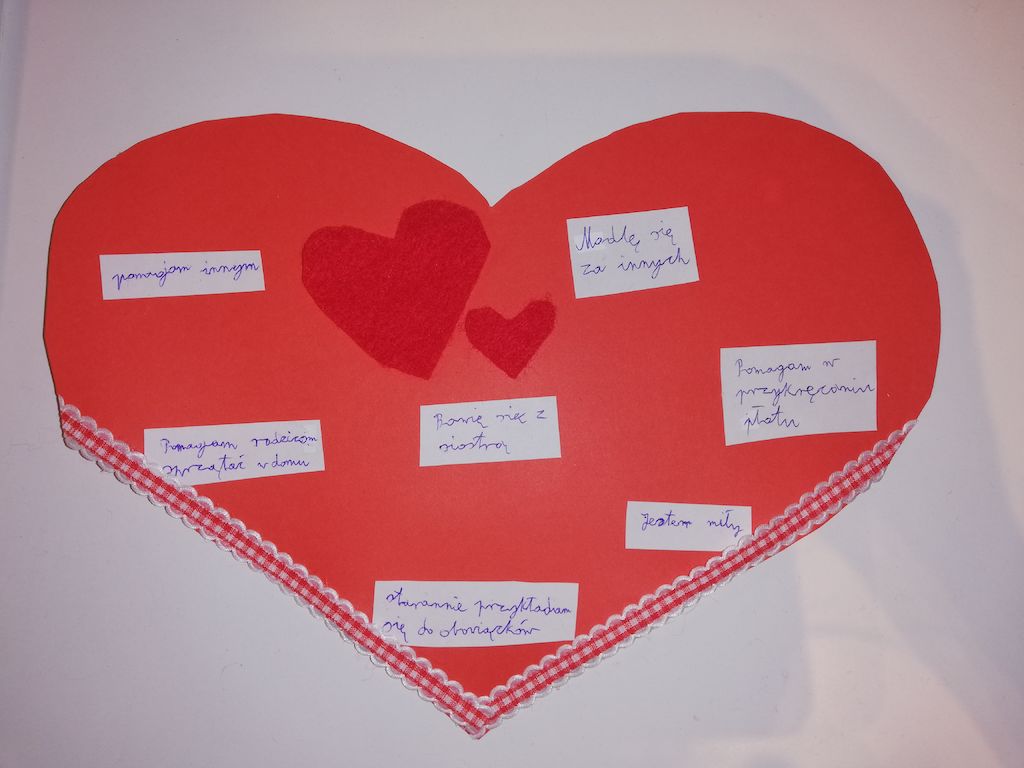 pomagam innym
Modlę się
za innych
Pomagam w
przykręcaniu
płotu
Pomagam rodzicom
sprzątać w domu
Bawię się z
siostrą
Jestem miły
starannie przykładam
się do obowiązków